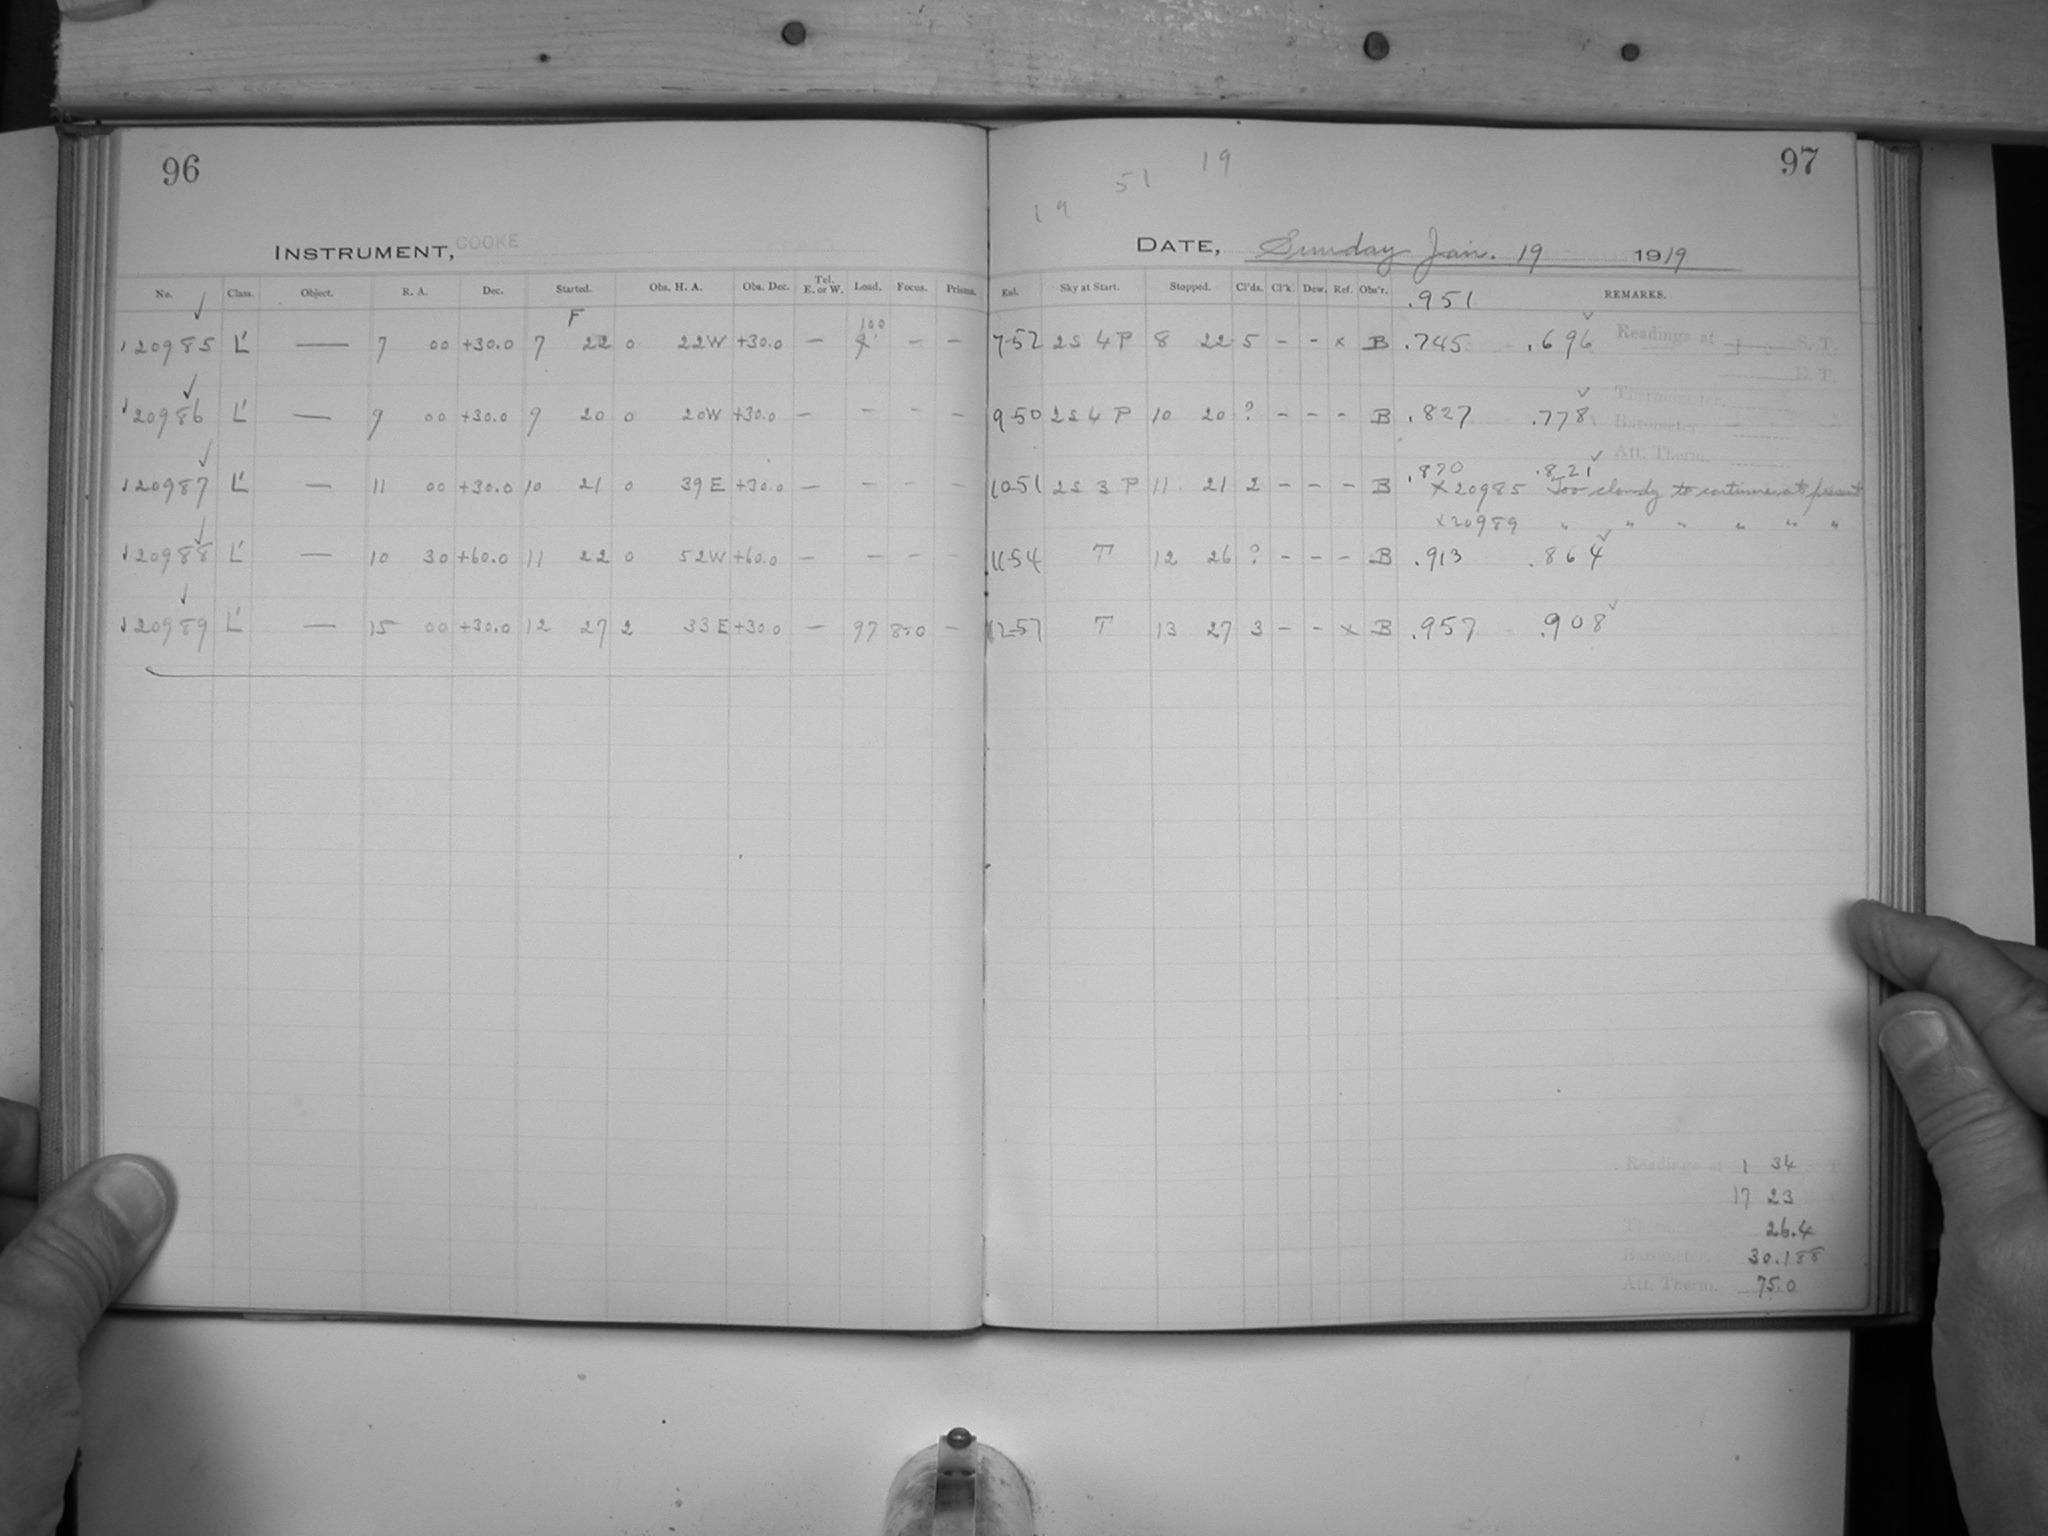 96
INSTRUMENT, COOKE
No. Class. Object. R. A. Dec. Started. Obs. H. A. Obs. Dec. Tel. E. or W. Load. Focus. Prisms.
F
100
20985 L' — 7 00 +30.0 7 22 0 22W +30.0 — — —
20986 L' — 9 00 +30.0 9 20 0 20W +30.0 — — — —
20987 L' — 11 00 +30.0 10 21 0 39E +30.0 — — — —
20988 L' — 10 30 +60.0 11 22 0 52W +60.0 — — — —
20989 L' — 15 00 +30.0 12 27 2 33E +30.0 — 97 8.0 —
97
19
51
19
DATE, Sunday Jan. 19 1919
Sky at Start. Stopped. Cl'ds. Cl'k. Dew. Ref. Obs'r. REMARKS.
.951
7-52 2S 4 P 8 22 5 - - x B .745 .696 Readings at S. T.
E. T.
Thermometer.
9-50 2S 4 P 10 20 ? - - - B .827 .778 Barometer.
Att. Therm.
.870 .821
10-51 2S 3 P 11 21 2 - - - B x20985 Too cloudy to continue at present
x20989 " " " " " "
11-54 T 12 26 ? - - - B .913 .864
12-57 T 13 27 3 - - x B .957 .908
Readings at 1 34
17 23
26.4
Barometer. 30.188
Att. Therm. 75.0